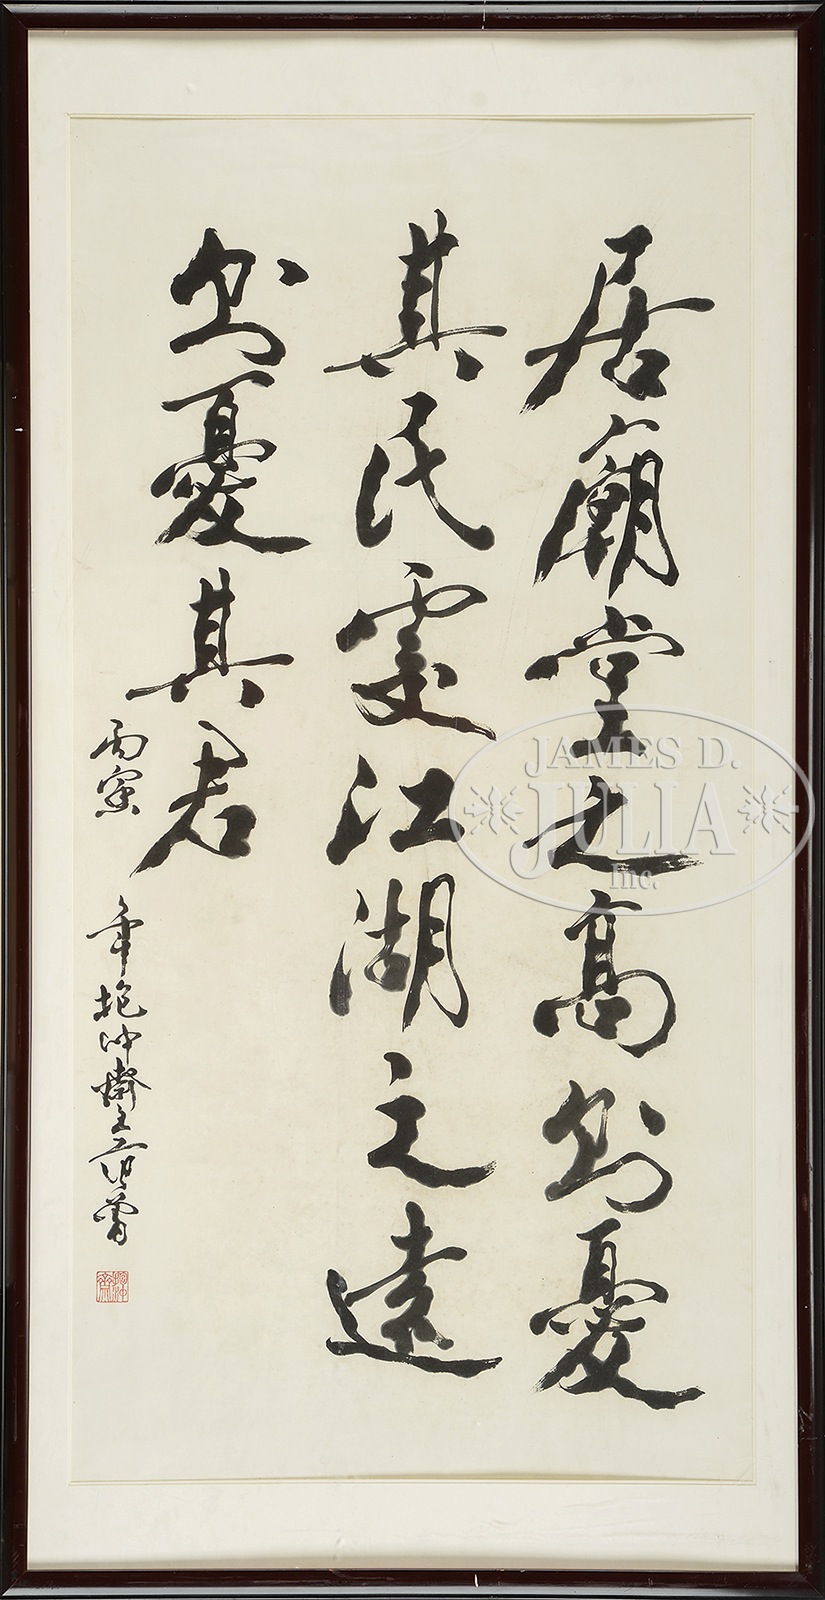 居廟堂之高則憂
其民處江湖之遠
則憂其君
丙寅
年抱沖齋主范曾
抱沖齋
JAMES D.
JULIA
Inc.